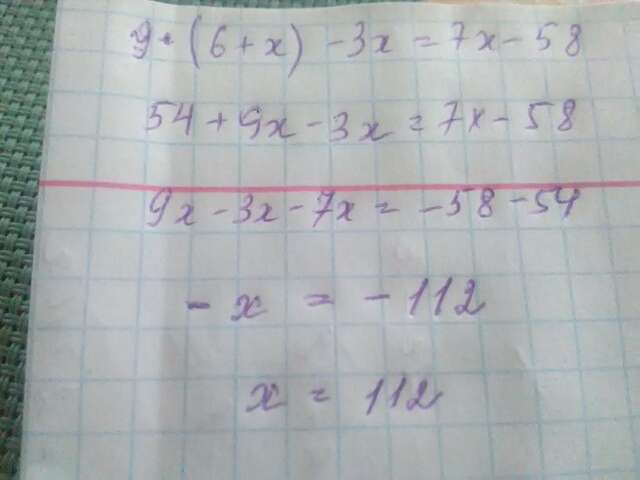 9·(6+x)-3x=7x-58
54+9x-3x=7x-58
9x-3x-7x=-58-54
-x=-112
x=112